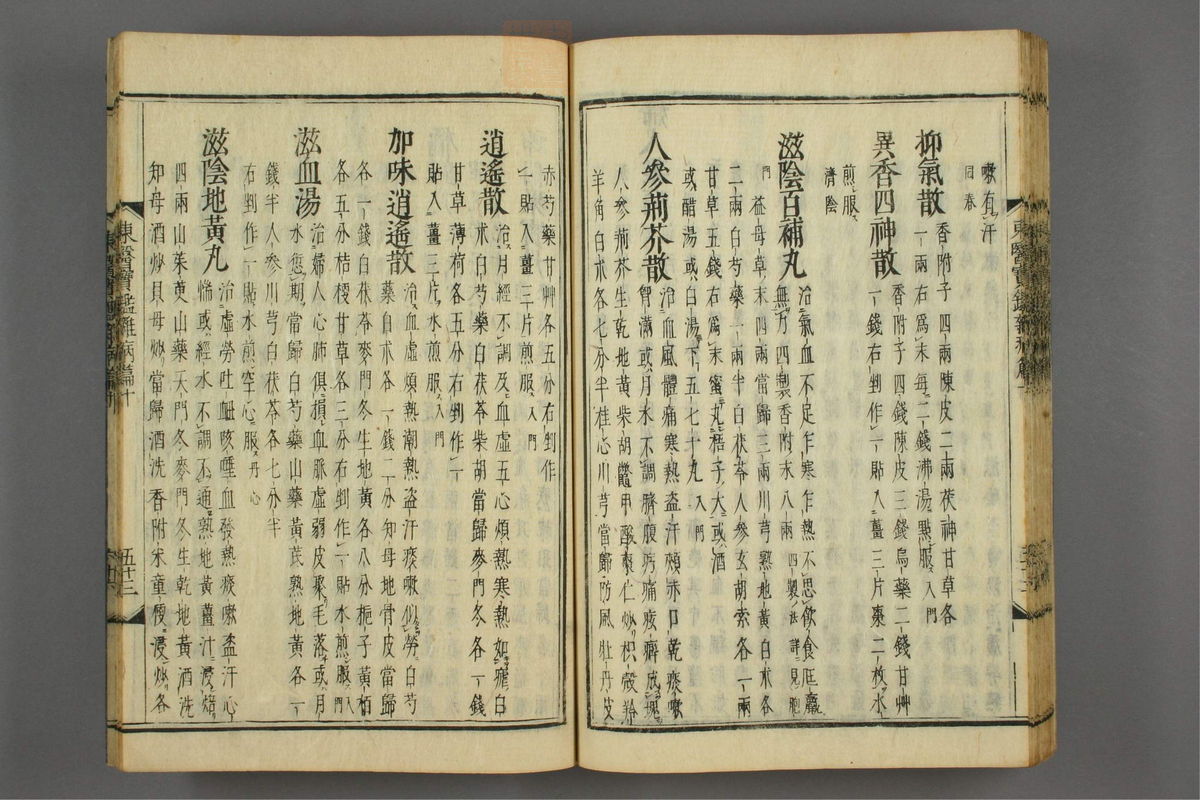 嗽有汗
回春
抑氣散
香附子四兩陳皮二兩茯神甘草各
一兩右爲末每二錢沸湯點服入門
異香四神散
香附子四錢陳皮三錢烏藥二錢甘艸
一錢右剉作一貼入薑三片棗二枚水
煎服
濟陰
滋陰百補丸
治氣血不足乍寒乍熱不思飲食尫羸
無力四製香附末八兩四製法詳見胞
門益母草末四兩當歸三兩川芎熟地黃白朮各
二兩白芍藥一兩半白茯苓人參玄胡索各一兩
甘草五錢右爲末蜜丸梧子大或酒
或醋湯或白湯下五七十丸入門
人參荊芥散
治血風體痛寒熱盜汗頰赤口乾痰嗽
胷滿或月水不調臍腹㽲痛痃癖成塊
人參荊芥生乾地黃柴胡鱉甲酸棗仁炒枳殼羚
羊角白朮各七分半桂心川芎當歸防風牡丹皮
赤芍藥甘艸各五分右剉作
一貼入薑三片煎服入門
逍遙散
治月經不調及血虛五心煩熱寒熱如瘧白
朮白芍藥白茯苓柴胡當歸麥門冬各一錢
甘草薄荷各五分右剉作一
貼入薑三片水煎服入門
加味逍遙散
治血虛煩熱潮熱盜汗痰嗽似勞白芍
藥白朮各一錢二分知母地骨皮當歸
各一錢白茯苓麥門冬生地黃各八分梔子黃栢
各五分桔梗甘草各三分右剉作一貼水煎服入門
滋血湯
治婦人心肺俱損血脈虛弱皮聚毛落或月
水愆期當歸白芍藥山藥黃芪熟地黃各一
錢半人參川芎白茯苓各七分半
右剉作一貼水煎空心服丹心
滋陰地黃丸
治虛勞吐衄咳唾血發熱痰嗽盜汗心
惴或經水不調不通熟地黃薑汁浸焙
四兩山茱萸山藥天門冬麥門冬生乾地黃酒洗
知母酒炒貝母炒當歸酒洗香附米童便浸炒各
東醫寶鑑雜病篇十
五十三